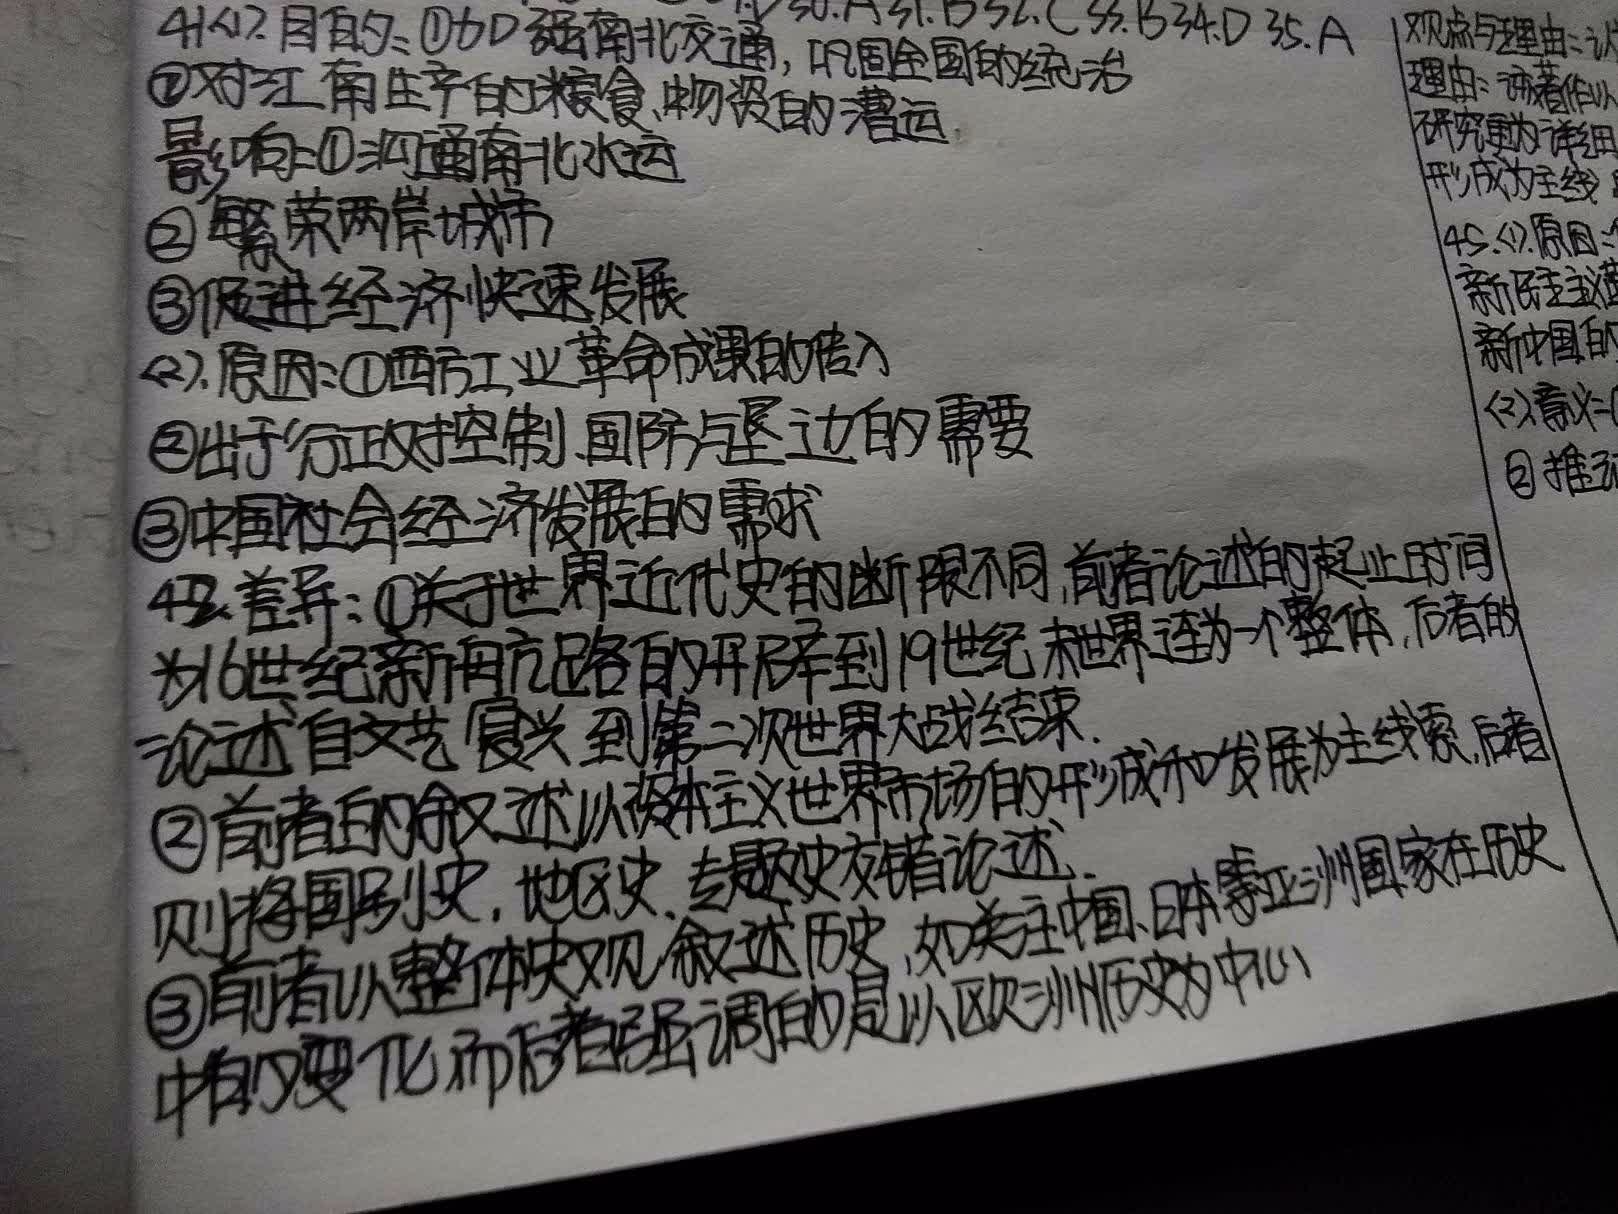 30.A 31.B 32.C 33.B 34.D 35.A
41.<1>.目的:①加强南北交通，巩固全国的统治
②对江南生产的粮食、物资的漕运.
影响:①沟通南北水运
②繁荣两岸城市
③促进经济快速发展
<2>.原因:①西方工业革命成果的传入
②出于行政对控制、国防与垦边的需要
③中国社会经济发展的需求
42.差异:①关于世界近代史的断限不同,前者论述的起止时间
为16世纪新航路的开辟到19世纪末世界连为一个整体,后者的
论述自文艺复兴到第二次世界大战结束.
②前者的叙述以资本主义世界市场的形成和发展为主线索,后者
则将国别史,地区史、专题史交错论述.
③前者以整体史观叙述历史,如关注中国、日本等亚洲国家在历史
中的变化,而后者强调的是以欧洲历史为中心
观点与理由:认
理由:该著作以
研究更为详细
形成为主线
45.<1>.原因:
新民主主义革
新中国的
<2>.意义:
②推动